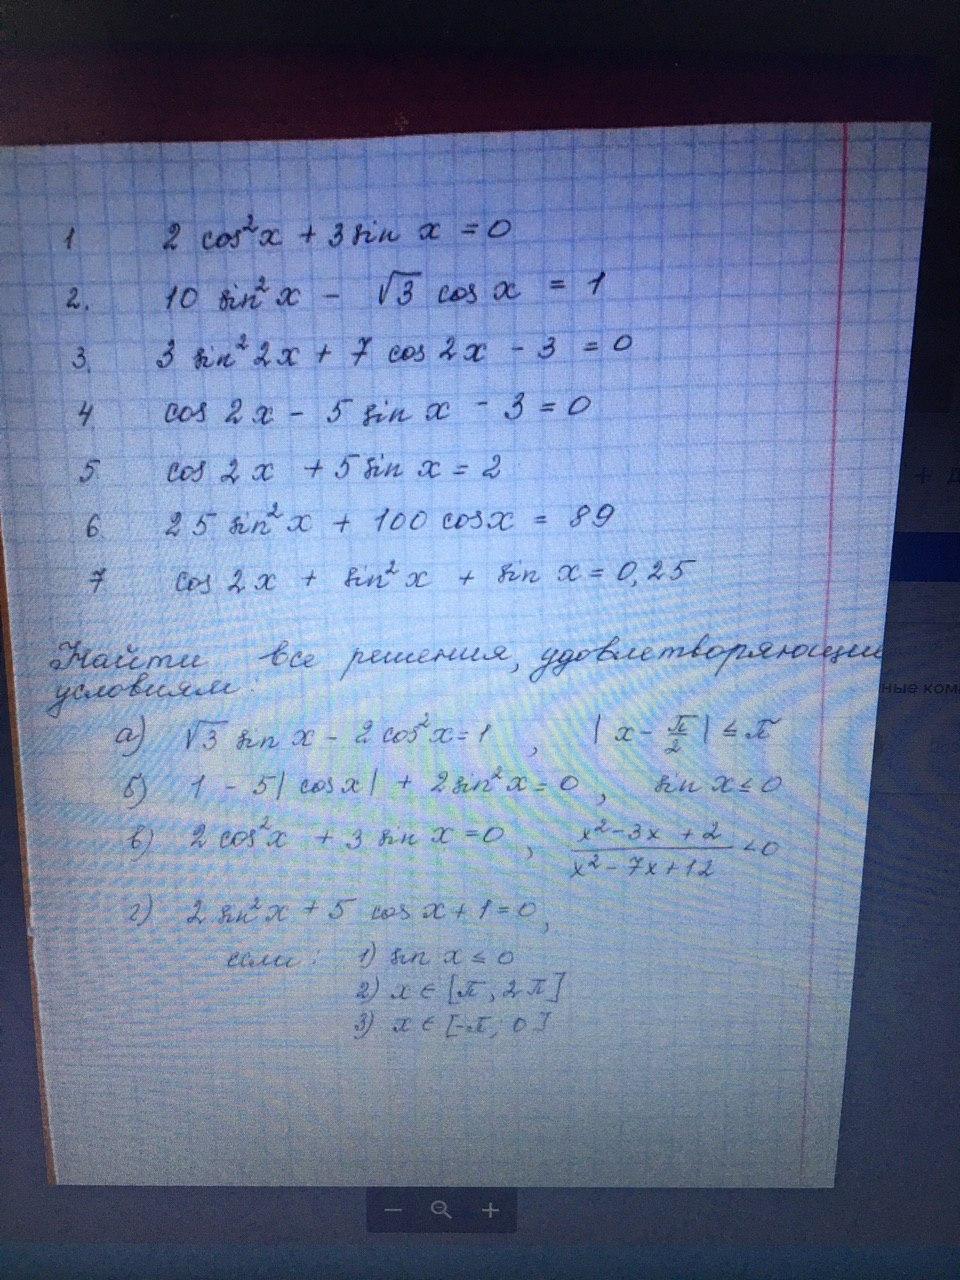 1 2 cos²x + 3 sin x = 0
2. 10 sin²x - √3 cos x = 1
3. 3 sin²2x + 7 cos 2x - 3 = 0
4 cos 2x - 5 sin x - 3 = 0
5 cos 2x + 5 sin x = 2
6. 25 sin²x + 100 cos x = 89
7 cos 2x + sin²x + sin x = 0,25
Найти все решения, удовлетворяющие
условиям:
а) √3 sin x - 2 cos²x = 1, |x - π/2| ≤ π
б) 1 - 5|cos x| + 2 sin²x = 0, sin x ≤ 0
в) 2 cos²x + 3 sin x = 0, (x² - 3x + 2)/(x² - 7x + 12) < 0
г) 2 sin²x + 5 cos x + 1 = 0,
если: 1) sin x ≤ 0
2) x ∈ [π, 2π]
3) x ∈ [-π, 0]
ные ком